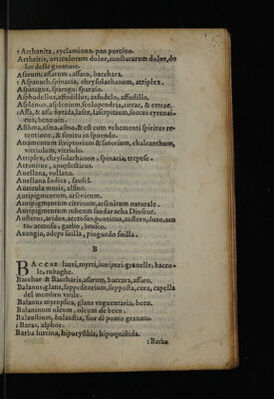 Arthanita, cyclaminus, pan porcino.
Arthritis, articulorum dolor, iuncturarum dolor, do
lor delle gionture.
Asarum, assarum: assaro, bacchara.
Aspanach, spinacia, chrysolachanon, atriplex.
Asparagus, sparagο: sparaio.
Asphodellus, affodillus, asfodelo, affodillo.
Asplenon, asplenium, scolopendria, citrac, & cetrac.
Assa, & asa foetida, laser, laserpitium, succus cyrenai-
cus, benzoin.
Asthma, asma, asmo, & est cum vehementi spiritus re
tentione, & sonitu in spuendo.
Atramentum scriptorium & sutorium, chalcanthum,
vitriolum, vitriolo.
Atriplex, chrysolachanon, spinacia, trepese.
Attonitus, apoplecticus.
Auellana, vollana.
Auellana Indica, faufel.
Auricula muris, alsine.
Auripigmentum, arsenicum.
Auripigmentum citrinum, arsenicum naturale.
Auripigmentum rubeum sandaracha Dioscor.
Austerus, aridus, acetosus, ponticus, austero, duro, ace
to, acetoso, garbo, brusco.
Axungia, adeps suilla, pinguedo suilla.
B
BACCAE lauri, myrti, iuniperi granelle, bacco-
le, rubaghe.
Bacchar, & Baccharis, asarum, baccara, assaro.
Balanus, glans, suppositorium, supposta, cura, capella
del membro virile.
Balanus myrepsica, glans vnguentaria, been.
Balaninum oleum, oleum de been.
Balaustium, balaustia, fior di pomo granato.
Baras, alphos.
Barba hircina, hipocysthis, hipoquistida.
Barba